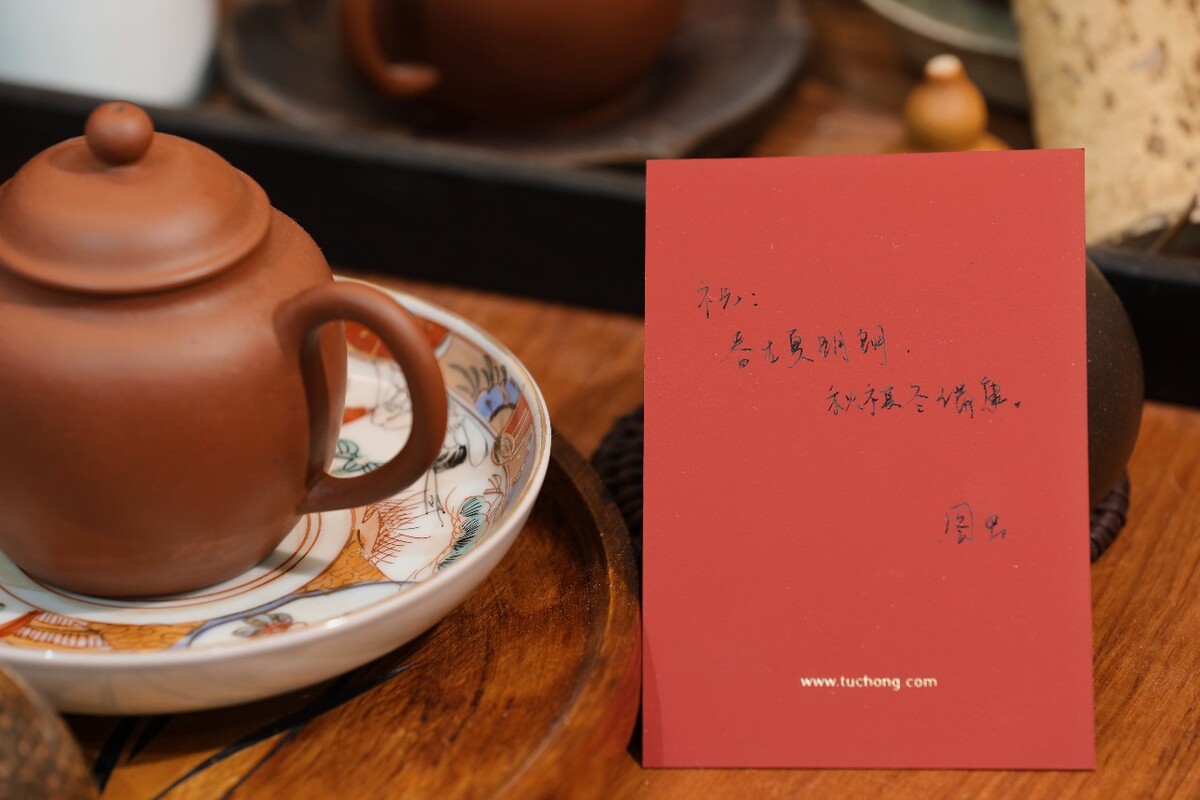 祝:
春生夏明朗.
秋祺冬備康。
图虫
www.tuchong.com